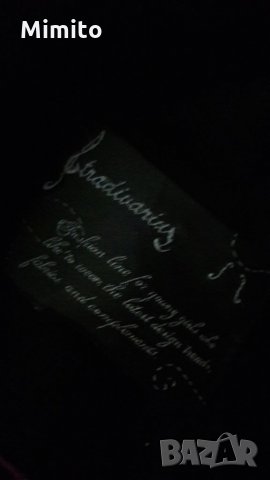 Mimito
Stradivarius
Fashion line for young girl who
like to wear the latest design trends,
fabrics and complements
BAZAR
.bg